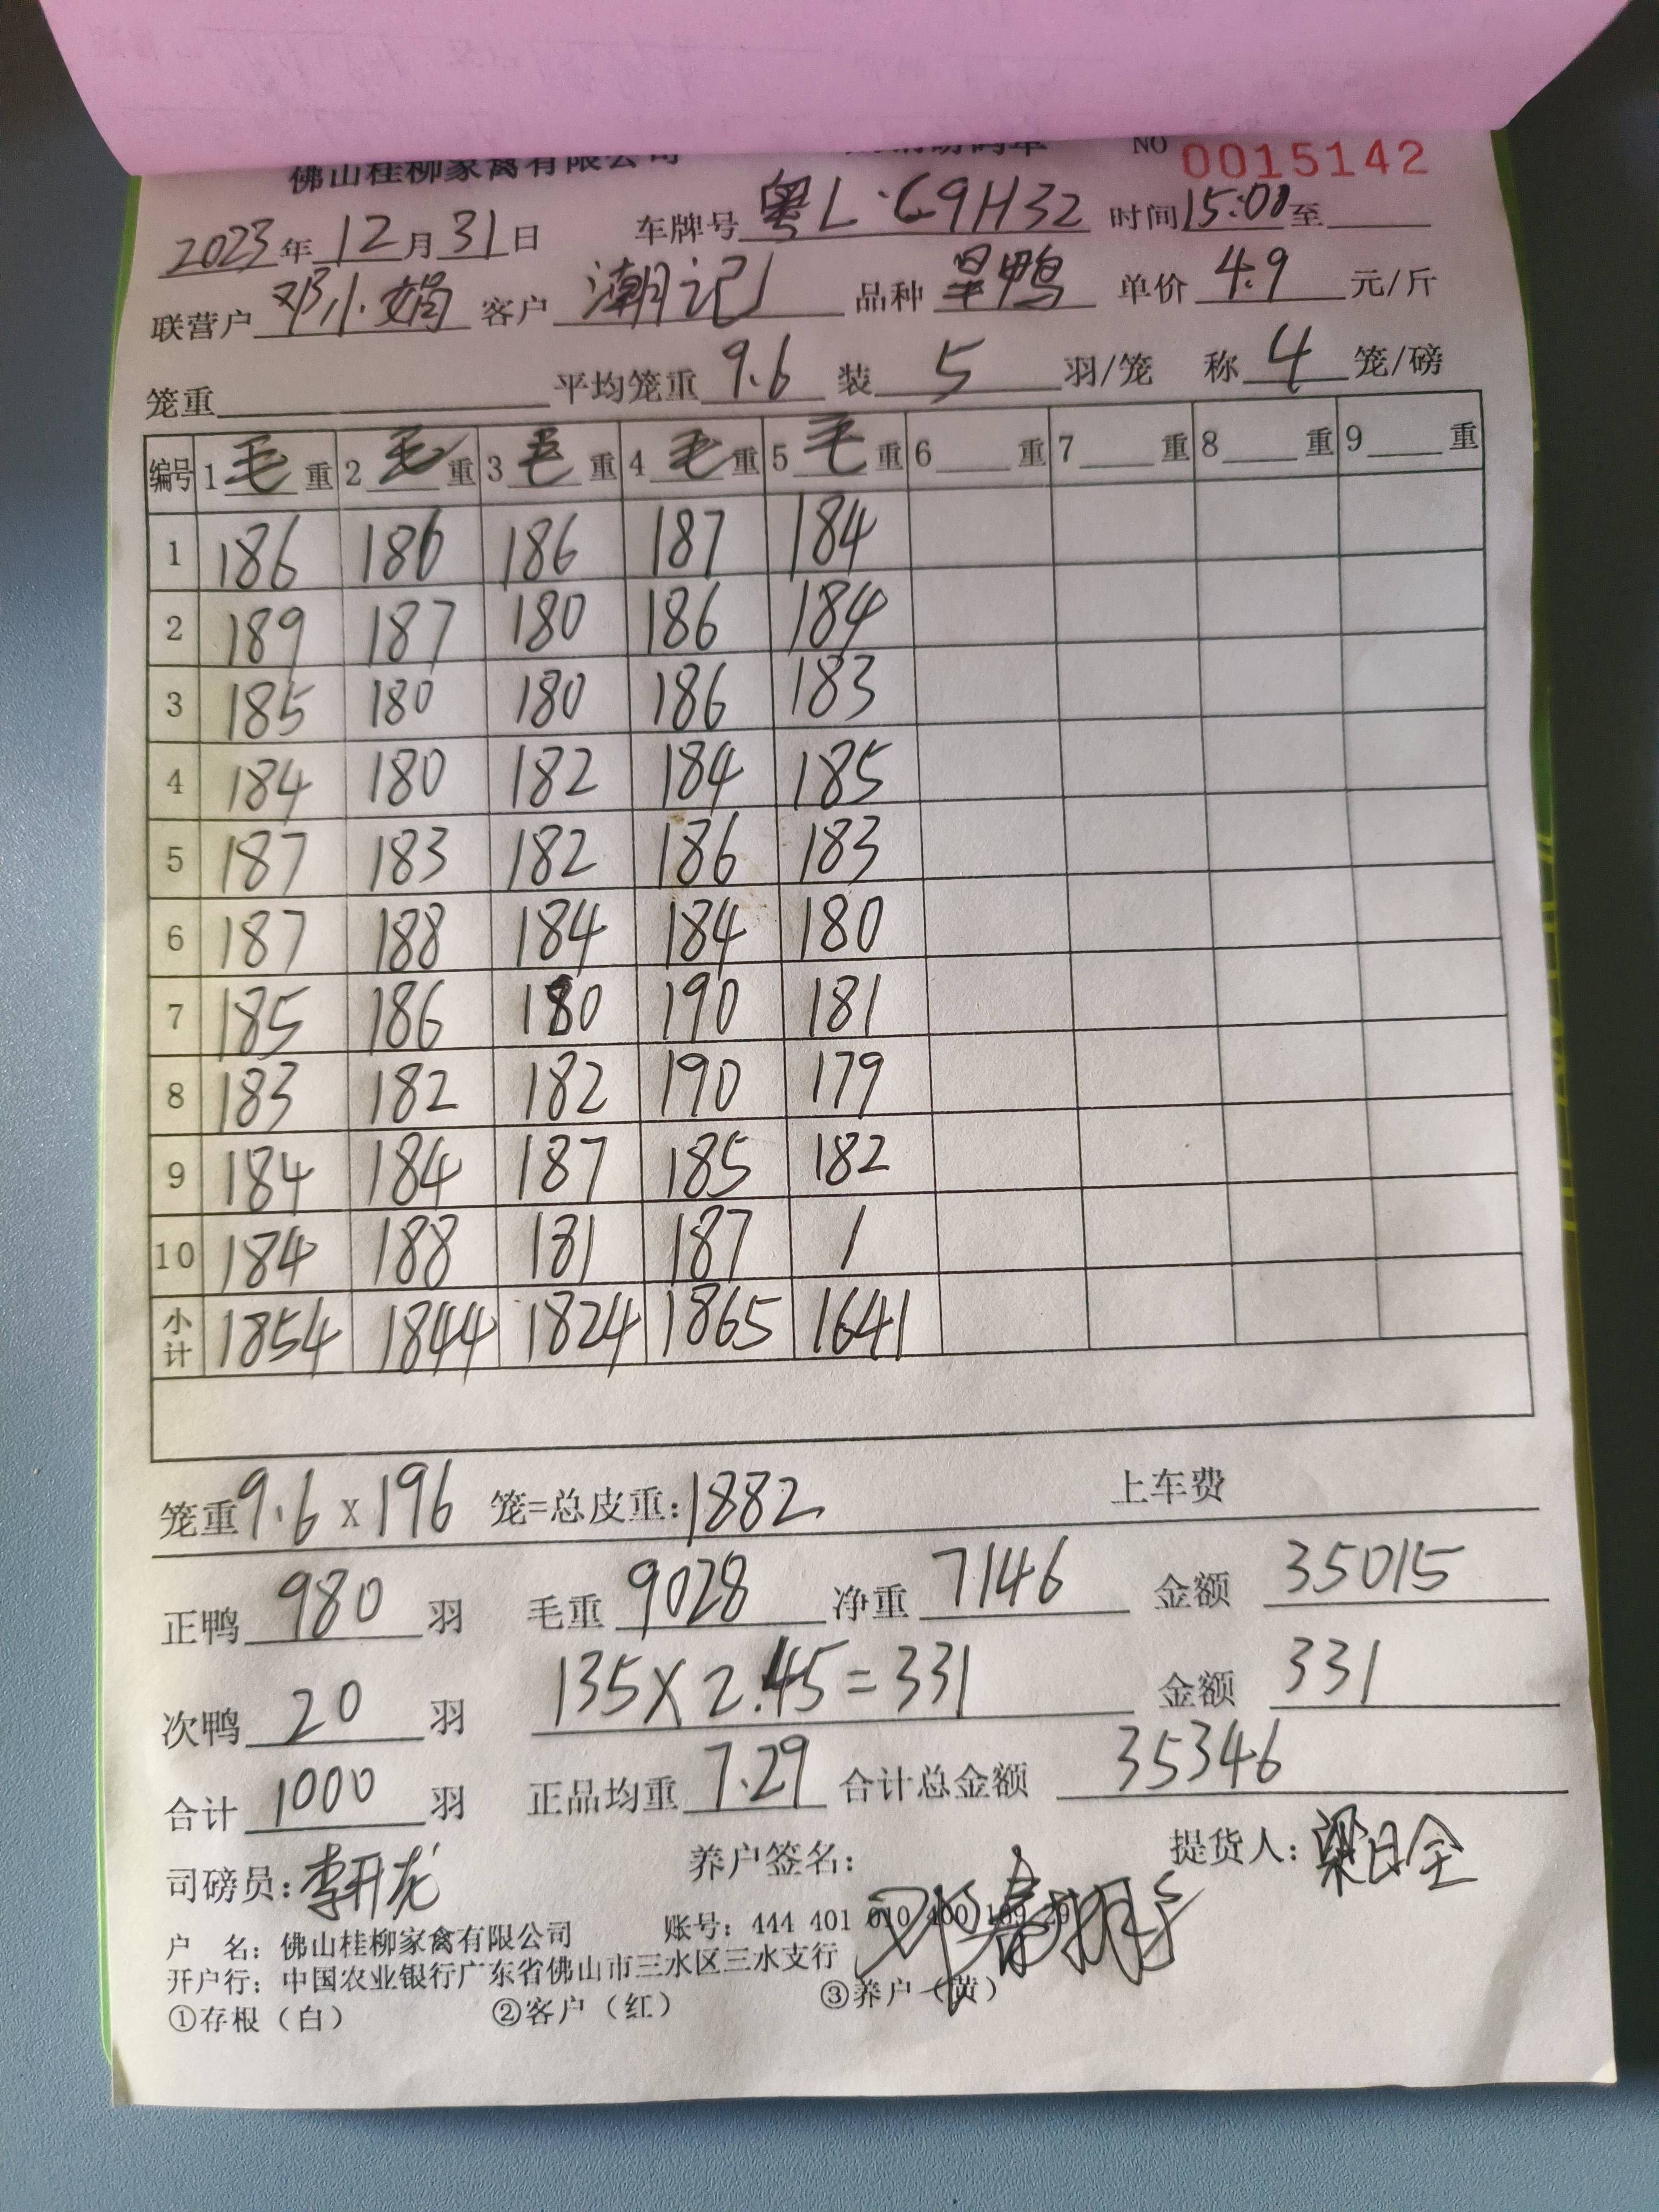 佛山桂柳家禽有限公司 NO 0015142
2023年12月31日 车牌号 粤L·G9H32 时间15:00至
联营户 邓小娟 客户 潮记 品种 旱鸭 单价 4.9 元/斤
笼重 平均笼重 9.6 装 5 羽/笼 称 4 笼/磅
编号 1 毛 重 2 毛 重 3 毛 重 4 毛 重 5 毛 重 6 重 7 重 8 重 9 重
1 186 186 186 187 184
2 189 187 180 186 184
3 185 180 180 186 183
4 184 180 182 184 185
5 187 183 182 186 183
6 187 188 184 184 180
7 185 186 180 190 181
8 183 182 182 190 179
9 184 184 187 185 182
10 184 188 181 187 /
小计 1854 1844 1824 1865 1641
笼重9.6 x 196 笼=总皮重:1882 上车费
正鸭 980 羽 毛重 9028 净重 7146 金额 35015
次鸭 20 羽 135×2.45=331 金额 331
合计 1000 羽 正品均重 7.29 合计总金额 35346
司磅员:李开龙 养户签名: 提货人:梁日全
户 名: 佛山桂柳家禽有限公司 账号: 444 401 010 400
开户行: 中国农业银行广东省佛山市三水区三水支行
①存根(白) ②客户(红) ③养户(黄)